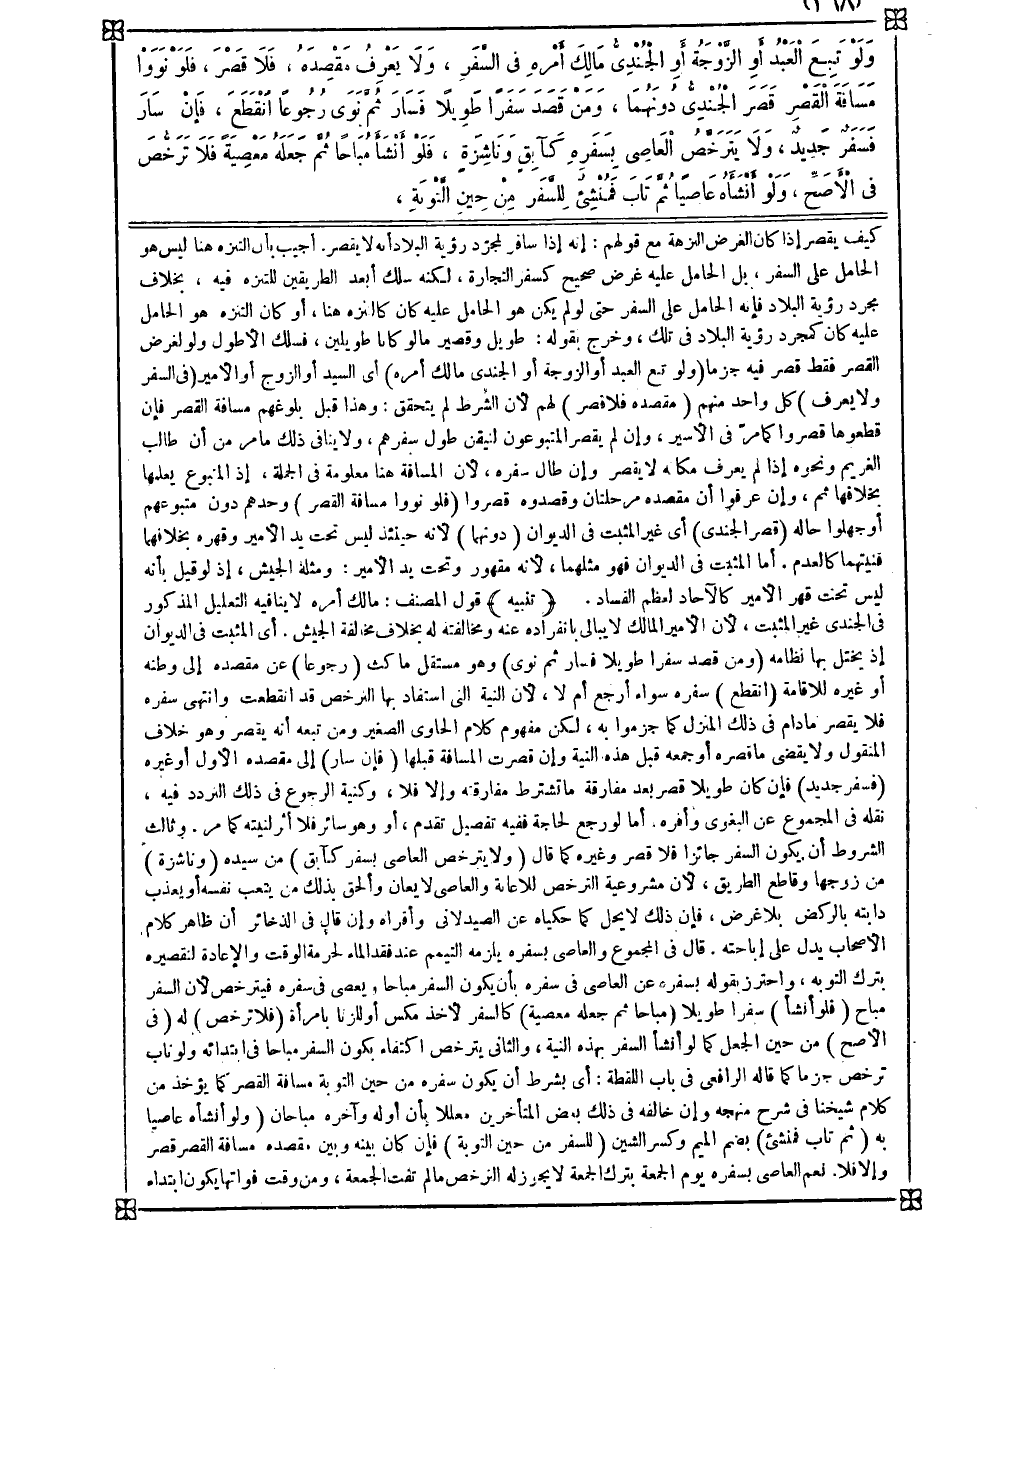 (٢٦٨)
وَلَوْ تَبِعَ الْعَبْدُ أَوِ الزَّوْجَةُ أَوِ الْجُنْدِىُّ مَالِكَ أَمْرِهِ فِى السَّفَرِ ، وَلَا يَعْرِفُ مَقْصِدَهُ ، فَلَا قَصْرَ ، فَلَوْ نَوَوْا
مَسَافَةَ الْقَصْرِ قَصَرَ الْجُنْدِىُّ دُونَهُمَا ، وَمَنْ قَصَدَ سَفَرًا طَوِيلًا فَسَارَ ثُمَّ نَوَى رُجُوعًا انْقَطَعَ ، فَإِنْ سَارَ
فَسَفَرٌ جَدِيدٌ ، وَلَا يَتَرَخَّصُ الْعَاصِى بِسَفَرِهِ كَآبِقٍ وَنَاشِزَةٍ ، فَلَوْ أَنْشَأَ مُبَاحًا ثُمَّ جَعَلَهُ مَعْصِيَةً فَلَا تَرَخُّصَ
فِى الْأَصَحِّ ، وَلَوْ أَنْشَأَهُ عَاصِيًا ثُمَّ تَابَ فَمُنْشِئٌ لِلسَّفَرِ مِنْ حِينِ التَّوْبَةِ ،
كيف يقصر إذا كان الغرض النزهة مع قولهم : إنه إذا سافر لمجرّد رؤية البلاد أنه لا يقصر. أجيب بأن التنزه هنا ليس هو
الحامل على السفر ، بل الحامل عليه غرض صحيح كسفر التجارة ، لكنه سلك أبعد الطريقين للتنزه فيه ، بخلاف
مجرد رؤية البلاد فإنه الحامل على السفر حتى لو لم يكن هو الحامل عليه كان كالتنزه هنا ، أو كان التنزه هو الحامل
عليه كان كمجرد رؤية البلاد فى تلك ، وخرج بقوله : طويل وقصير مالو كانا طويلين ، فسلك الأطول ولو لغرض
القصر فقط قصر فيه جزما (ولو تبع العبد أو الزوجة أو الجندى مالك أمره) أى السيد أو الزوج أو الأمير (فى السفر
ولا يعرف ) كل واحد منهم ( مقصده فلا قصر ) لهم لأن الشرط لم يتحقق : وهذا قبل بلوغهم مسافة القصر فإن
قطعوها قصروا كما مرّ فى الأسير ، وإن لم يقصر المتبوعون لتيقن طول سفرهم ، ولا ينافى ذلك مامر من أن طالب
الغريم ونحوه إذا لم يعرف مكانه لا يقصر وإن طال سفره ، لأن المسافة هنا معلومة فى الجملة ، إذ المتبوع يعلمها
بخلافها ثم ، وإن عرفوا أن مقصده مرحلتان وقصدوه قصروا (فلو نووا مسافة القصر ) وحدهم دون متبوعهم
أو جهلوا حاله (قصر الجندى) أى غير المثبت فى الديوان ( دونهما ) لأنه حينئذ ليس تحت يد الأمير وقهره بخلافهما
فنيتهما كالعدم . أما المثبت فى الديوان فهو مثلهما ، لأنه مقهور وتحت يد الأمير : ومثله الجيش ، إذ لو قيل بأنه
ليس تحت قهر الأمير كالآحاد لعظم الفساد . ﴿ تنبيه ﴾ قول المصنف : مالك أمره لا ينافيه التعليل المذكور
فى الجندى غير المثبت ، لأن الأمير المالك لا يبالى بانفراده عنه ومخالفته له بخلاف مخالفة الجيش . أى المثبت فى الديوان
إذ يختل بها نظامه (ومن قصد سفرا طويلا فسار ثم نوى) وهو مستقل ماكث (رجوعا ) عن مقصده إلى وطنه
أو غيره للاقامة (انقطع ) سفره سواء أرجع أم لا ، لأن النية التى استفاد بها الترخص قد انقطعت وانتهى سفره
فلا يقصر مادام فى ذلك المنزل كما جزموا به ، لكن مفهوم كلام الحاوى الصغير ومن تبعه أنه يقصر وهو خلاف
المنقول ولا يقضى ماقصره أو جمعه قبل هذه النية وإن قصرت المسافة قبلها ( فإن سار) إلى مقصده الأول أو غيره
(فسفر جديد) فإن كان طويلا قصر بعد مفارقة ماتشترط مفارقته وإلا فلا ، وكنية الرجوع فى ذلك التردد فيه ،
نقله فى المجموع عن البغوى وأقره. أما لو رجع لحاجة ففيه تفصيل تقدم ، أو وهو سائر فلا أثر لنيته كما مر . وثالث
الشروط أن يكون السفر جائزا فلا قصر وغيره كما قال ( ولا يترخص العاصى بسفره كآبق ) من سيده (وناشزة )
من زوجها وقاطع الطريق ، لأن مشروعية الترخص للاعانة والعاصى لا يعان وألحق بذلك من يتعب نفسه أو يعذب
دابته بالركض بلا غرض ، فإن ذلك لا يحل كما حكياه عن الصيدلانى وأقراه وإن قال فى الذخائر أن ظاهر كلام
الأصحاب يدل على إباحته . قال فى المجموع والعاصى بسفره يلزمه التيمم عند فقد الماء لحرمة الوقت والإعادة لتقصيره
بترك التوبة ، واحترز بقوله بسفره عن العاصى فى سفره بأن يكون السفر مباحا ويعصى فى سفره فيترخص لأن السفر
مباح ( فلو أنشأ ) سفرا طويلا (مباحا ثم جعله معصية) كالسفر لأخذ مكس أو للزنا بامرأة (فلا ترخص ) له (فى
الأصح ) من حين الجعل كما لو أنشأ السفر بهذه النية ، والثانى يترخص اكتفاء بكون السفر مباحا فى ابتدائه ولو تاب
ترخص جزما كما قاله الرافعى فى باب اللقطة : أى بشرط أن يكون سفره من حين التوبة مسافة القصر كما يؤخذ من
كلام شيخنا فى شرح منهجه وإن خالفه فى ذلك بعض المتأخرين معللا بأن أوله وآخره مباحان ( ولو أنشأه عاصيا
به ( ثم تاب فمنشئ) بضم الميم وكسر الشين (للسفر من حين التوبة ) فإن كان بينه وبين مقصده مسافة القصر قصر
وإلا فلا. نعم العاصى بسفره يوم الجمعة بترك الجمعة لا يجوز له الترخص مالم تفت الجمعة ، ومن وقت فواتها يكون ابتداء